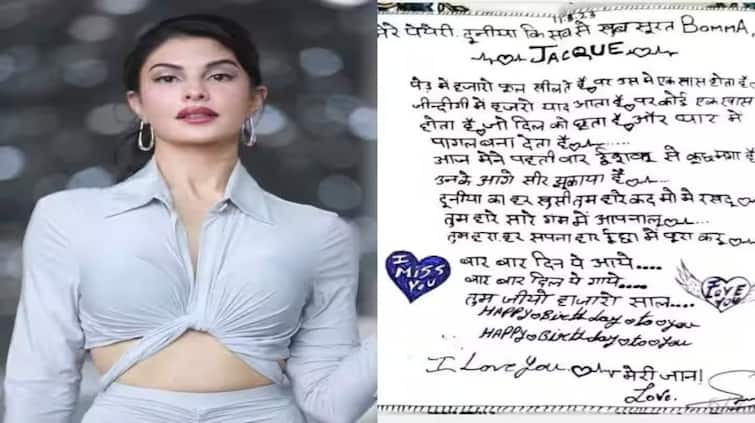 11.8.23
मेरे पेयेरी दूनीया कि सब से खुब सूरत BommA,
JACQUE
पेड़ मे हजारो फुल खीलते है, पर उस मे एक खास होता है
जीन्दीगी मे हजारो याद आता है, पर कोई एक खास
होता है, जो दिल को छुता है, और प्यार मे
पागल बना देता है......
आज मेने पहली बार से कुछ मंगा है
उनके आगे सीर झुकाया है...
दूनीया का हर खुसी तुम हारे कद मो मे रखदू
तुम हारे सारे गम मे आपनालू...
तुम हरा हर सपना हार मे पूरा करू
I MISS YOU
बार बार दिन ये आये....
बार बार दिल ये गाये....
तुम जीयो हजारो साल....
I LOVE YOU
HAPPY Birthday to you
HAPPY Birthday to you
I Love You मेरी जान!
Love.